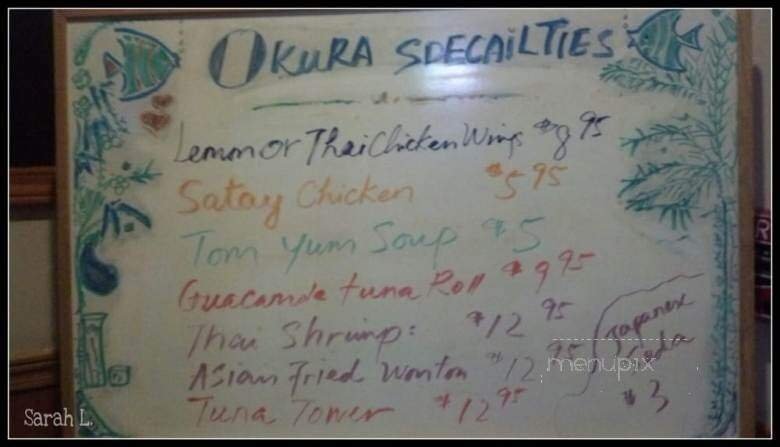 OKURA SPECAILTIES
Lemon or Thai Chicken Wings $8 95
Satay Chicken $5 95
Tom Yum Soup $5
Guacamole tuna Roll $9 95
Thai Shrimp: $12 95
Asian Fried Wonton $12 95
Tuna Tower $12 95
Japanese
Soda
$3
menupix
Sarah L.